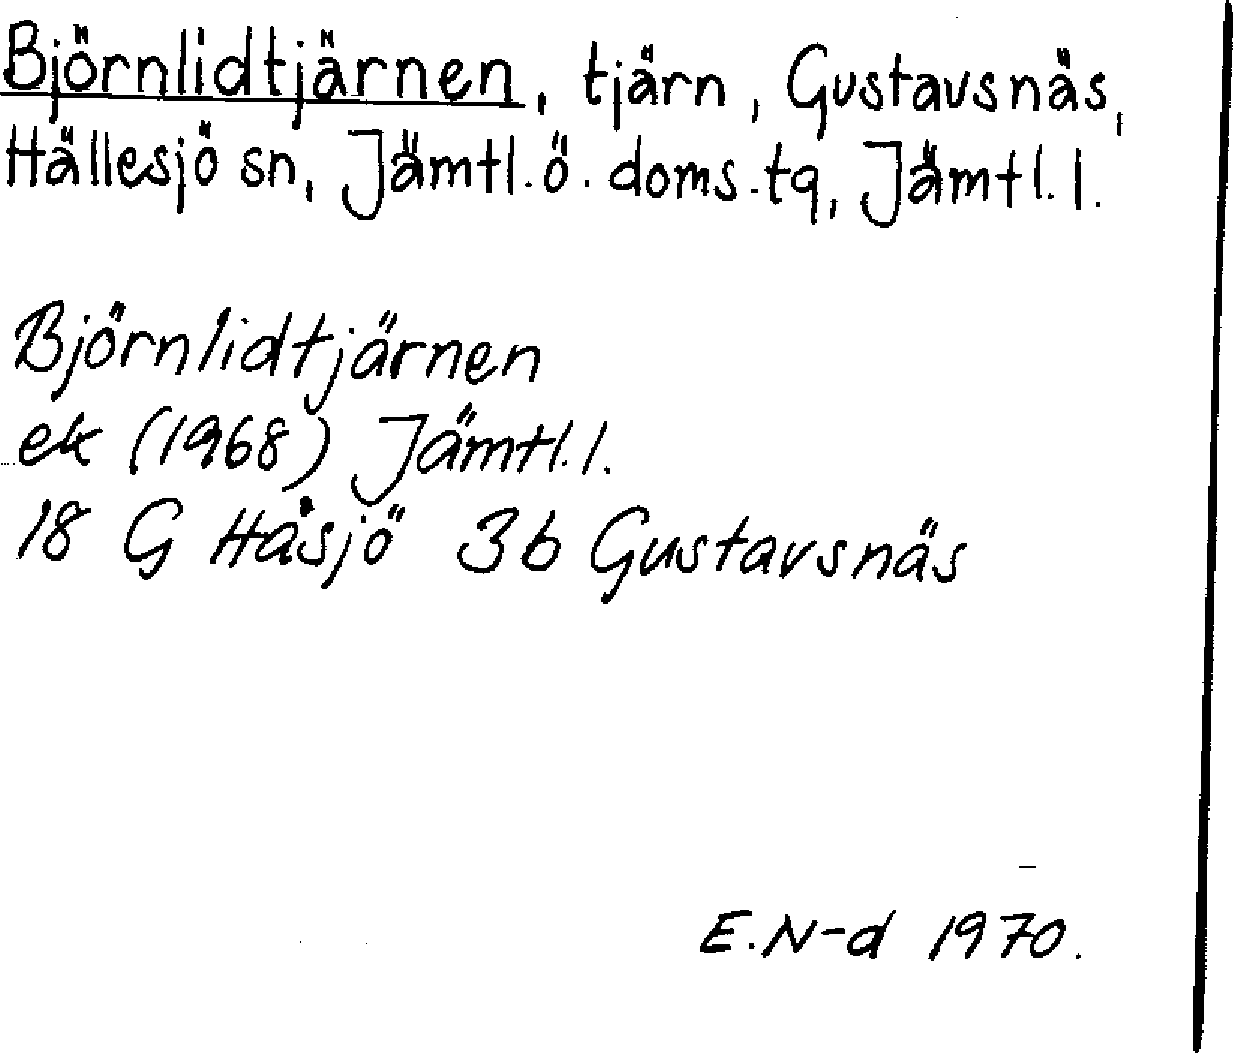 Björnlidtjärnen, tjärn, Gustavsnäs,
Hällesjö sn, Jämtl. ö. doms.tq, Jämtl. l.
Björnlidtjärnen
ek (1968) Jämtl. l.
18 G Håsjö 3b Gustavsnäs
E. N-d 1970.